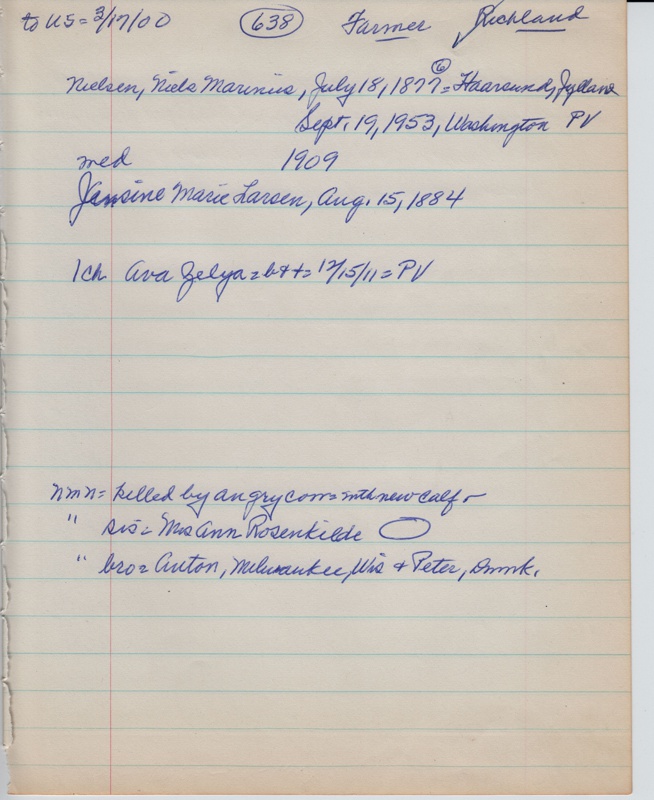 to US = 3/17/00 638 Farmer Richland
Nielsen, Niels Marinius, July 18, 1877 6 = Haarsund, Jylland
Sept. 19, 1953, Washington PV
med 1909
Jensine Marie Larsen, Aug. 15, 1884
1 ch Ava Zelya = b + t = 12/15/11 = PV
nmn = killed by angry cow = mth new calf
" sis = Mrs Ann Rosenkilde
" bro = Anton, Milwaukee, Wis + Peter, Dnmk.